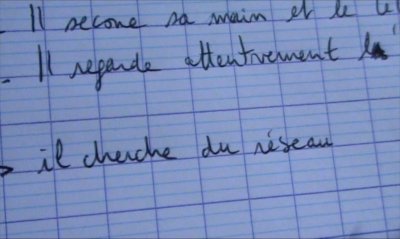 - Il secone sa main et le
- Il regarde attentivement
> il cherche du réseau